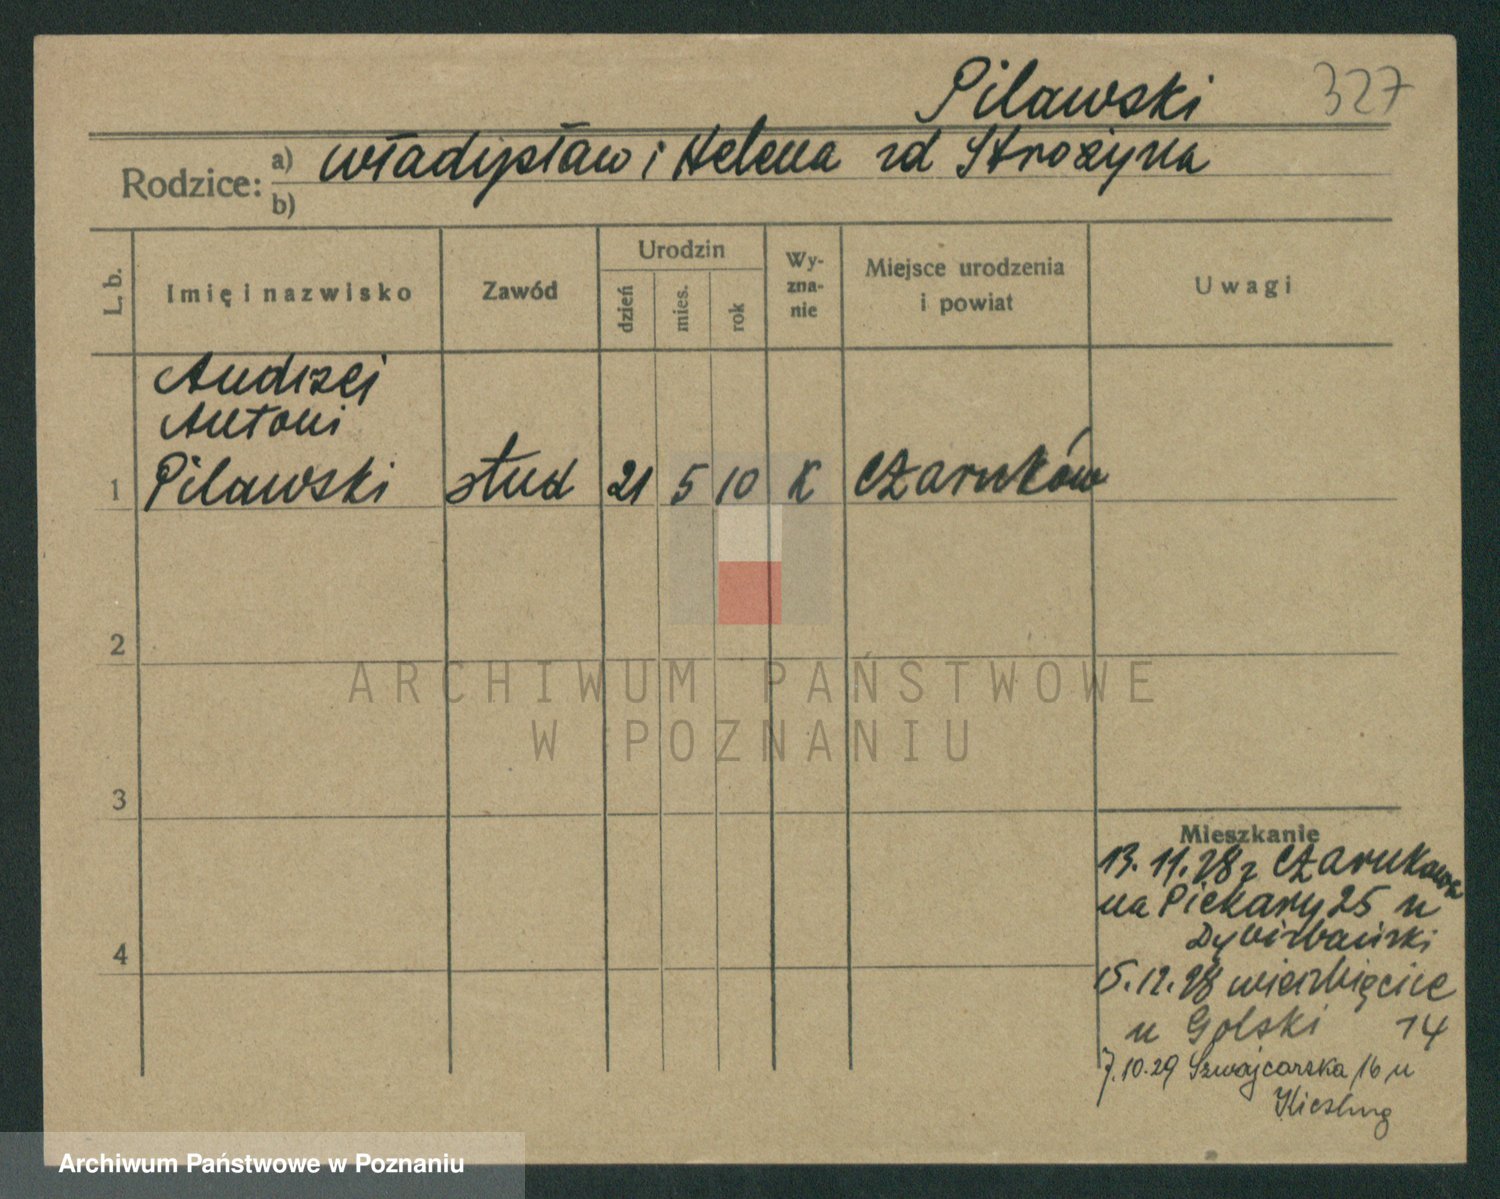 Pilawski 327
Rodzice: a) Władysław i Helena zd Strożyna
b)
L. b. Imię i nazwisko Zawód Urodzin dzień mies. rok Wy- zna- nie Miejsce urodzenia i powiat Uwagi
Andrzej
Antoni
1 Pilawski stud 21 5 10 K Czarnków
2
ARCHIWUM PAŃSTWOWE
W POZNANIU
3
Mieszkanie
13.11.28 z Czarnkowa
na Piekary 25 u
4
15.12.28 Wierzbięcice
u Golski 14
7.10.29 Szwajcarska 16 u
Archiwum Państwowe w Poznaniu